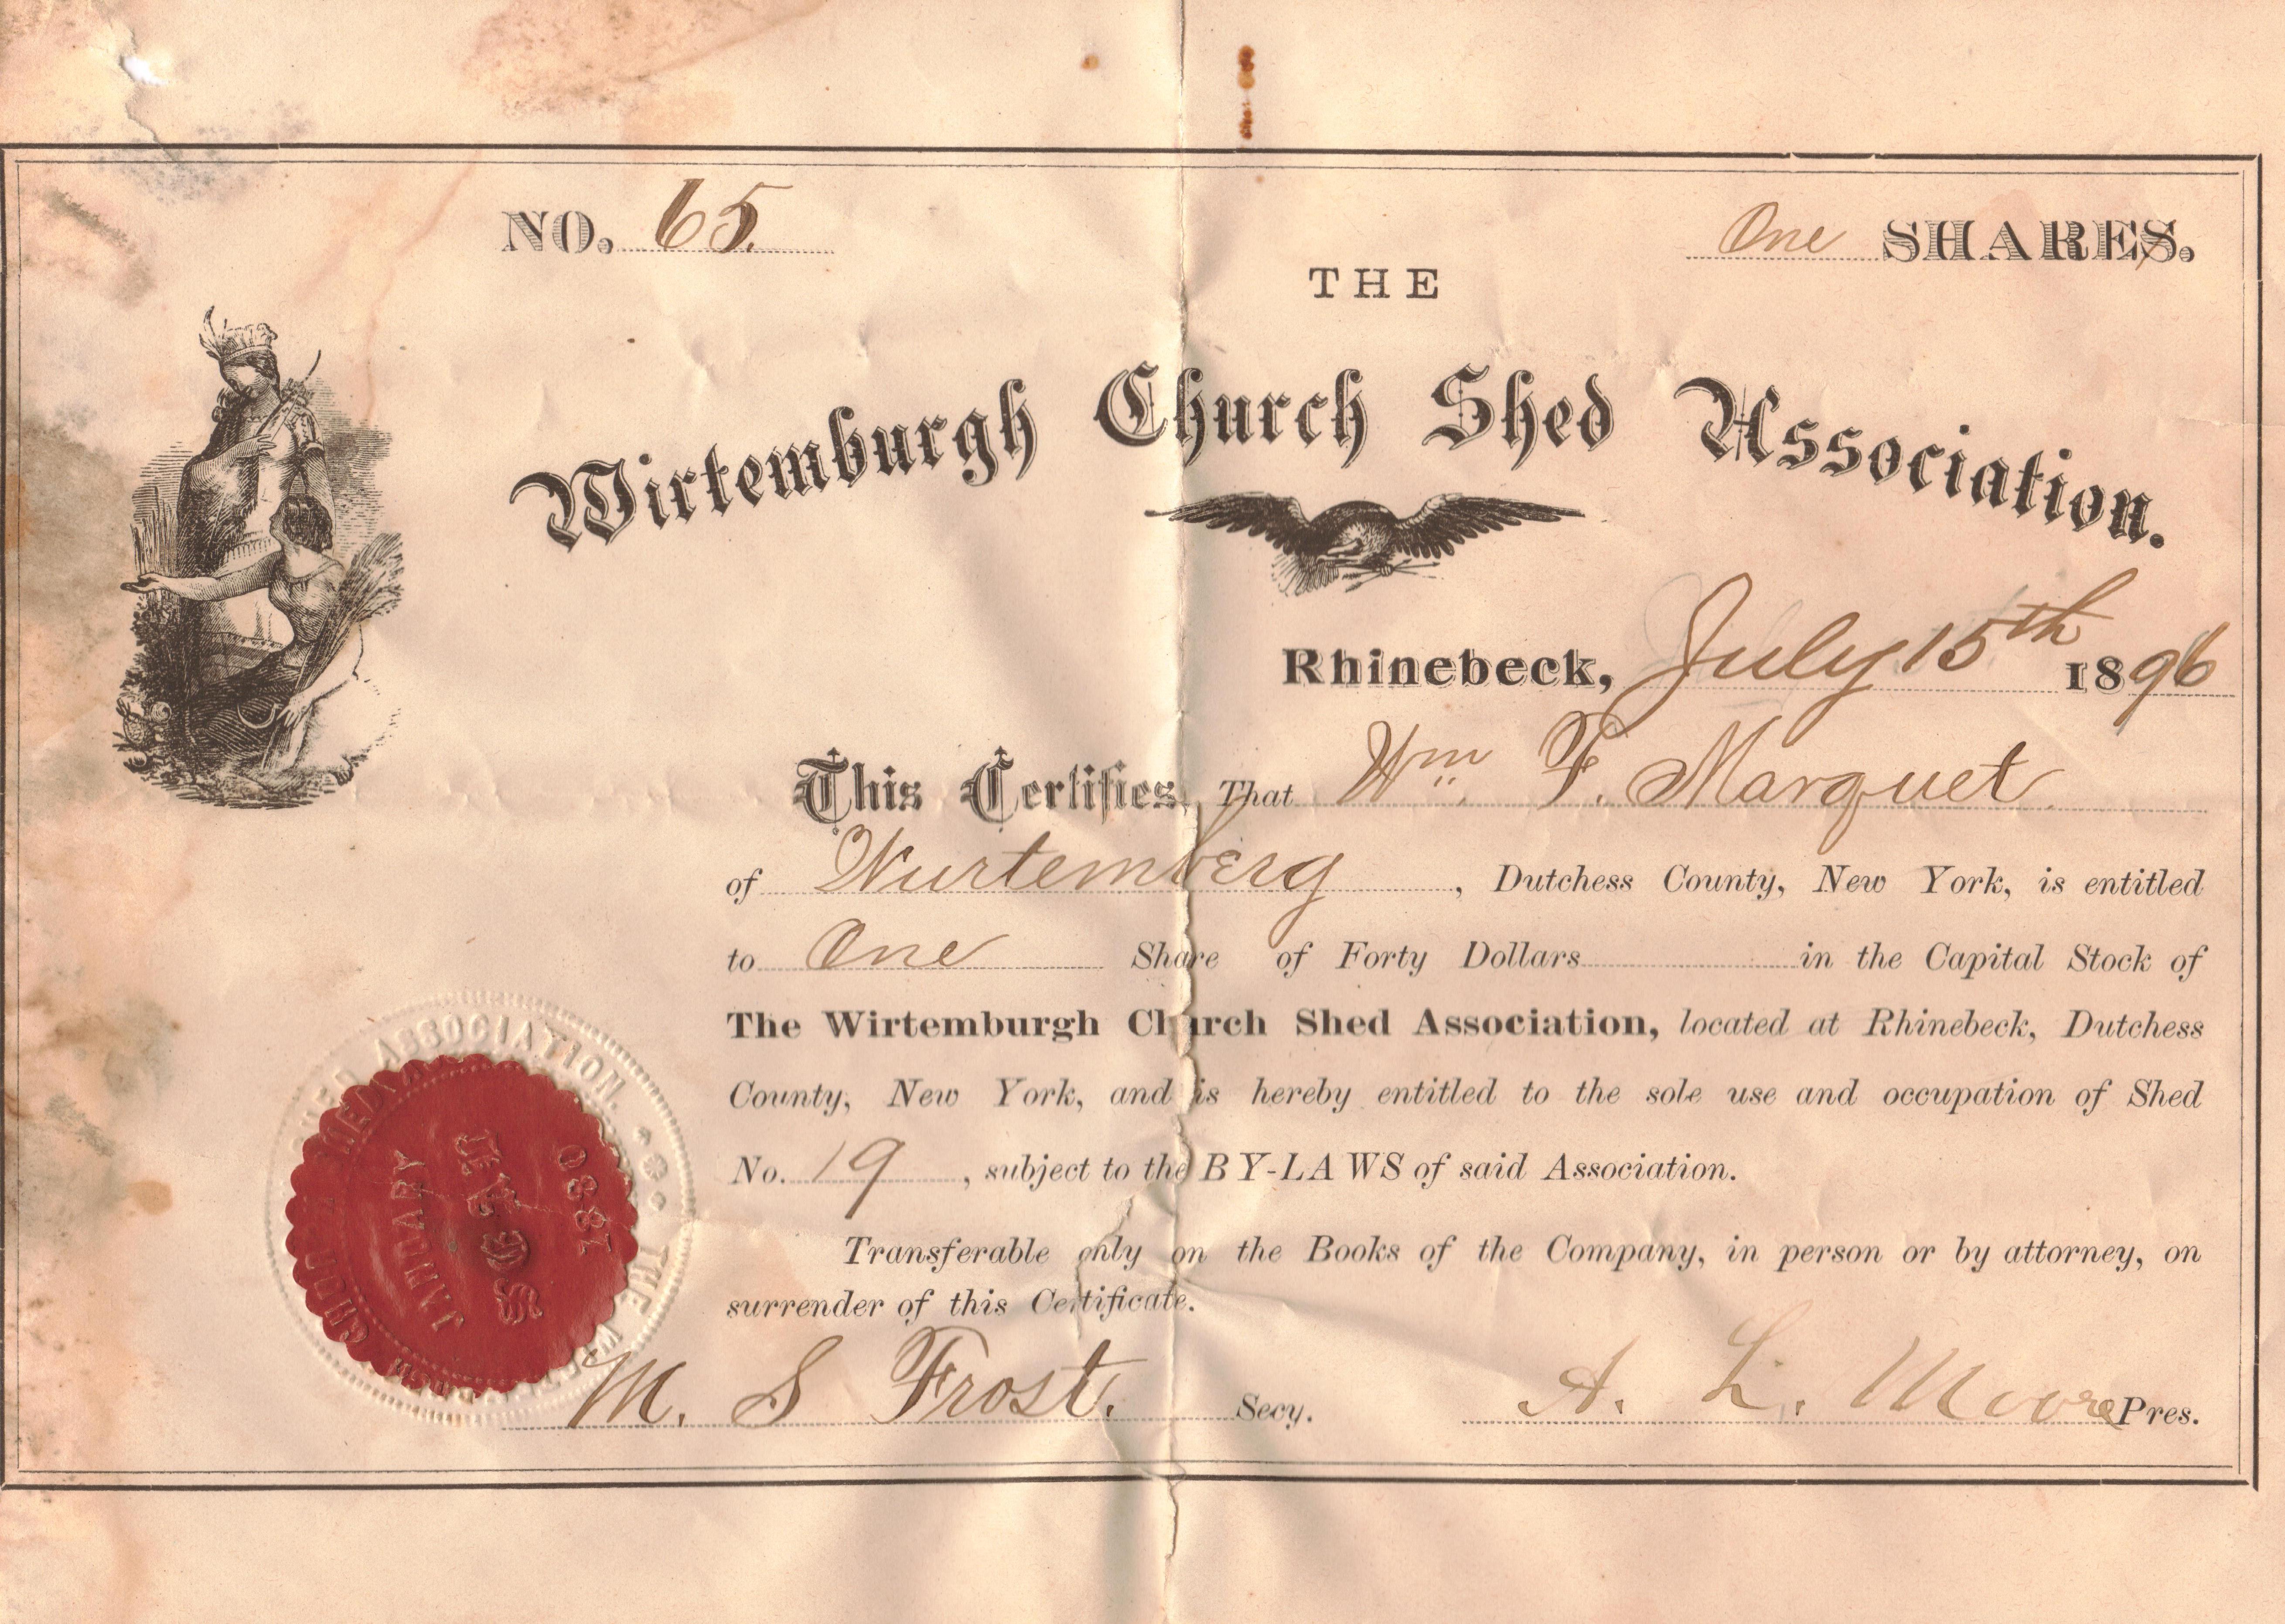 NO. 65.
One SHARES.
THE
Wirtemburgh Church Shed Association.
Rhinebeck, July 15th 1896
This Certifies, That Wm. F. Marquet
of Wurtemberg, Dutchess County, New York, is entitled
to One Share of Forty Dollars in the Capital Stock of
The Wirtemburgh Church Shed Association, located at Rhinebeck, Dutchess
County, New York, and is hereby entitled to the sole use and occupation of Shed
No. 19, subject to the BY-LAWS of said Association.
Transferable only on the Books of the Company, in person or by attorney, on
surrender of this Certificate.
M. S Frost. Secy.
A. L. Moore Pres.
THE SHED ASSOCIATION.
JANUARY
SEAL
1880